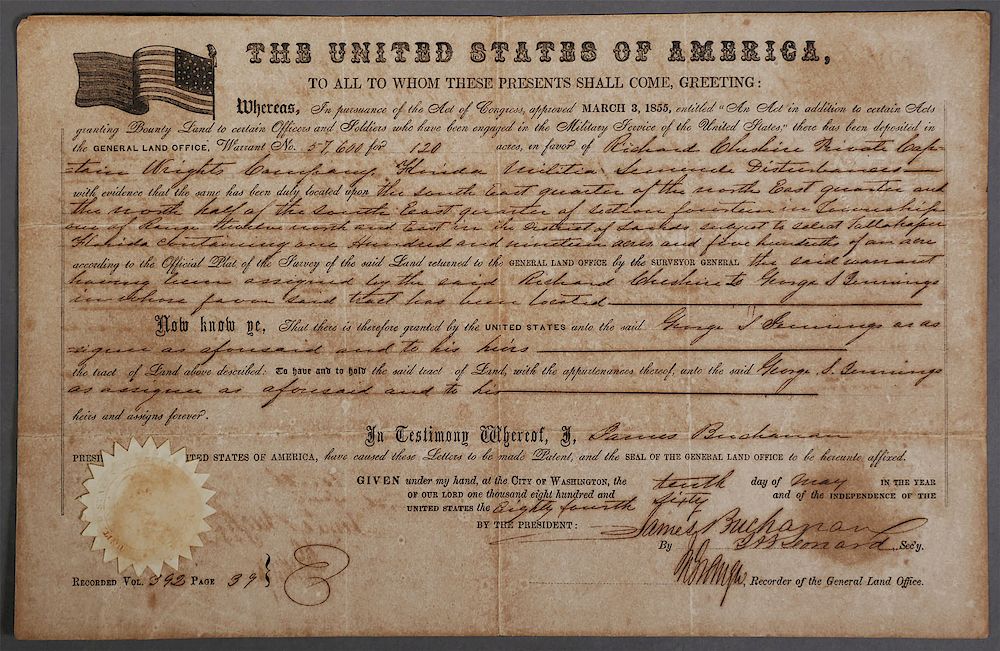 THE UNITED STATES OF AMERICA,
TO ALL TO WHOM THESE PRESENTS SHALL COME, GREETING:
Whereas, In pursuance of the Act of Congress, approved MARCH 3, 1855, entitled "An Act in addition to certain Acts
granting Bounty Land to certain Officers and Soldiers who have been engaged in the Military Service of the United States," there has been deposited in
the GENERAL LAND OFFICE, Warrant No. 57.600 for 120 acres, in favor of Richard Cheshire Private Cap-
tain Wrights Company Florida Militia Seminole Disturbances
with evidence that the same has been duly located upon the South East quarter of the north East quarter and
the north half of the South East quarter of Section fourteen in Township
one of Range twelve north and East in the District of Lands subject to sale at Tallahassee
Florida containing one Hundred and nineteen acres and five hundredths of an acre
according to the Official Plat of the Survey of the said Land returned to the GENERAL LAND OFFICE by the SURVEYOR GENERAL the said warrant
having been assigned by the said Richard Cheshire to George S Jennings
in whose favor said tract has been located
Now know ye, That there is therefore granted by the UNITED STATES unto the said George S Jennings as as
signee as aforesaid and to his heirs
the tract of Land above described: To have and to hold the said tract of Land, with the appurtenances thereof, unto the said George S. Jennings
as assignee as aforesaid and to his
heirs and assigns forever.
In Testimony Whereof, I, James Buchanan
PRES TED STATES OF AMERICA, have caused these Letters to be made Patent, and the SEAL OF THE GENERAL LAND OFFICE to be hereunto affixed.
GIVEN under my hand, at the CITY OF WASHINGTON, the tenth day of May IN THE YEAR
OF OUR LORD one thousand eight hundred and Sixty and of the INDEPENDENCE OF THE
UNITED STATES the Eighty fourth
BY THE PRESIDENT: James Buchanan
By J. B. Leonard, Sec'y.
Recorder of the General Land Office.
RECORDED VOL. 392 PAGE 39